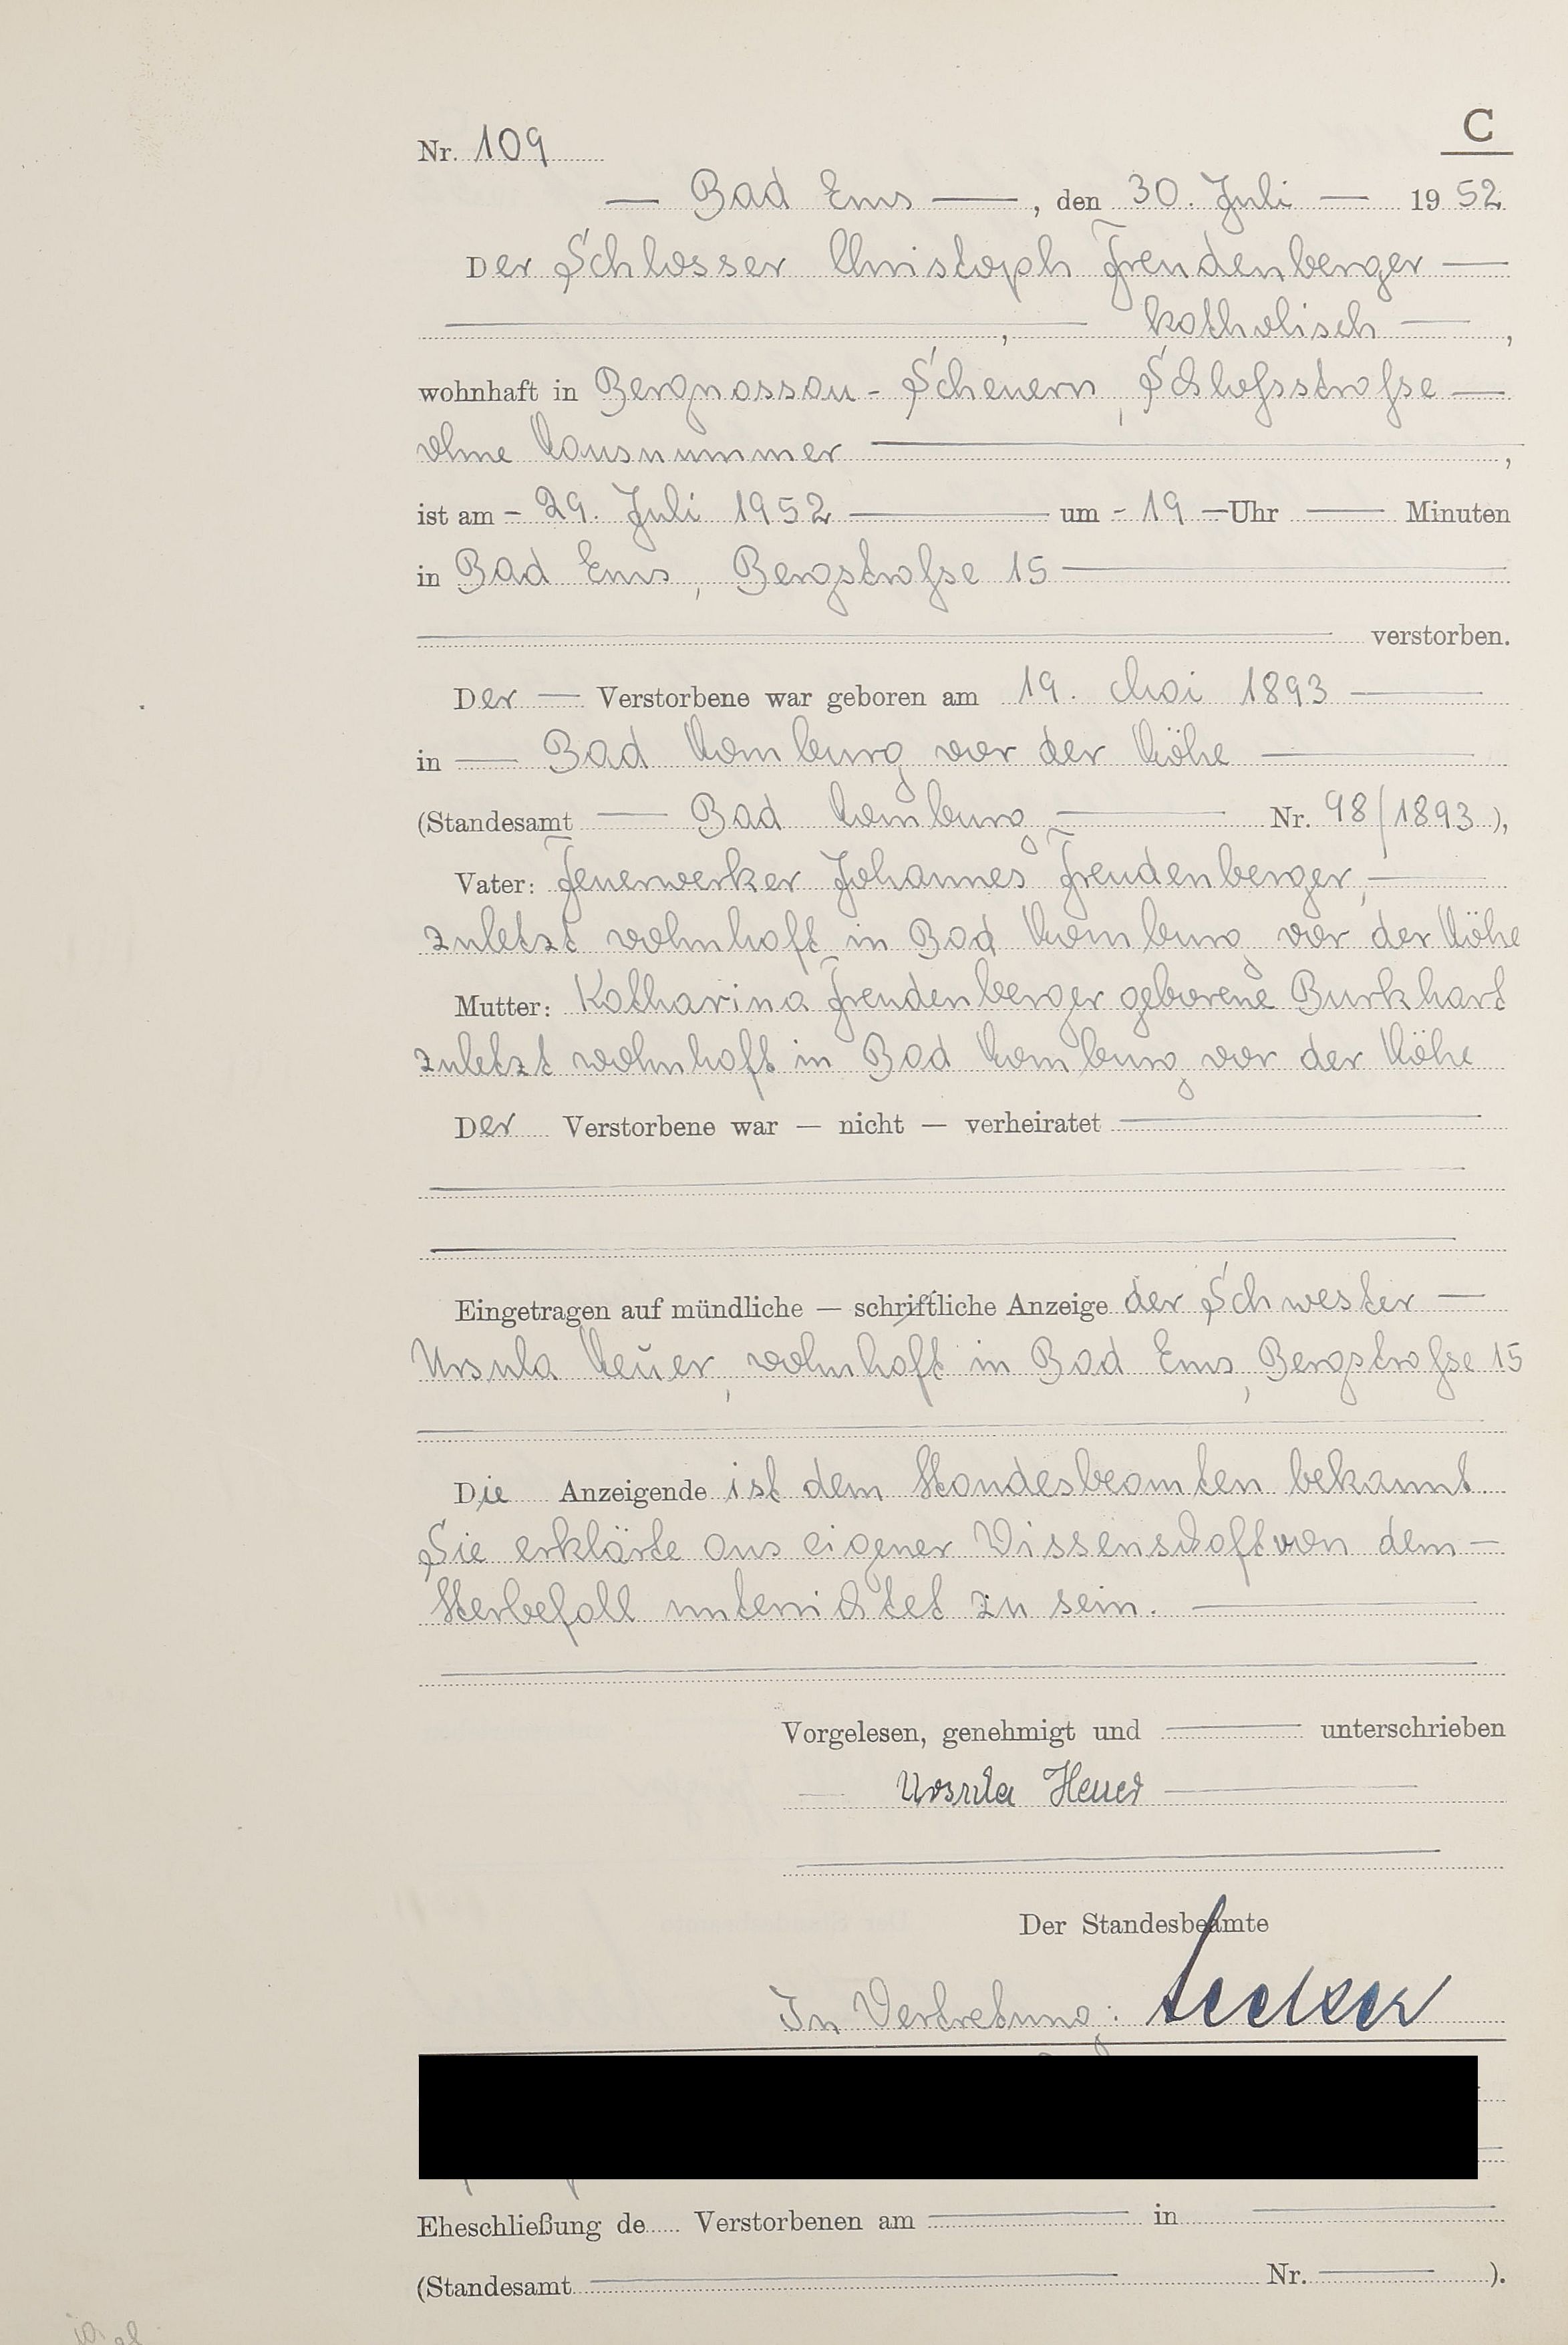 C
Nr. 109
— Bad Ems —, den 30. Juli — 1952
Der Schlosser Christoph Freudenberger —
—, — katholisch —,
wohnhaft in Bergnassau-Scheuern, Schloßstraße —
ohne Hausnummer —,
ist am - 29. Juli 1952 — um - 19 — Uhr — Minuten
in Bad Ems, Bergstraße 15 —
— verstorben.
Der — Verstorbene war geboren am 19. Mai 1893 —
in — Bad Homburg vor der Höhe —
(Standesamt — Bad Homburg — Nr. 98/1893),
Vater: Feuerwerker Johannes Freudenberger, —
zuletzt wohnhaft in Bad Homburg vor der Höhe
Mutter: Katharina Freudenberger geborene Burkhart
zuletzt wohnhaft in Bad Homburg vor der Höhe
Der Verstorbene war — nicht — verheiratet —
Eingetragen auf mündliche — schriftliche Anzeige der Schwester —
Ursula Heuer, wohnhaft in Bad Ems, Bergstraße 15
Die Anzeigende ist dem Standesbeamten bekannt.
Sie erklärte aus eigener Wissenschaft von dem —
Sterbefall unterrichtet zu sein. —
Vorgelesen, genehmigt und — unterschrieben
— Ursula Heuer —
Der Standesbeamte
In Vertretung:
Eheschließung de Verstorbenen am — in —
(Standesamt — Nr. — ).